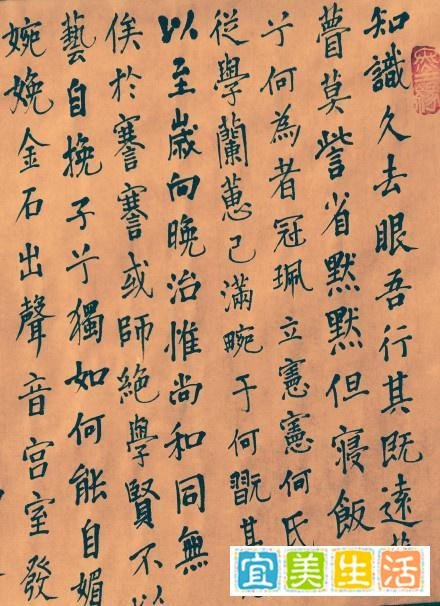 知識久去眼吾行其既遠
瞢莫訾省默默但寢飯
兮何為者冠珮立憲憲何氏
從學蘭蕙已滿畹于何翫其
以至歲向晚治惟尚和同無
俟於謇謇或師絕學賢不以
藝自挽子兮獨如何能自媚
婉娩金石出聲音宮室發
宜美生活